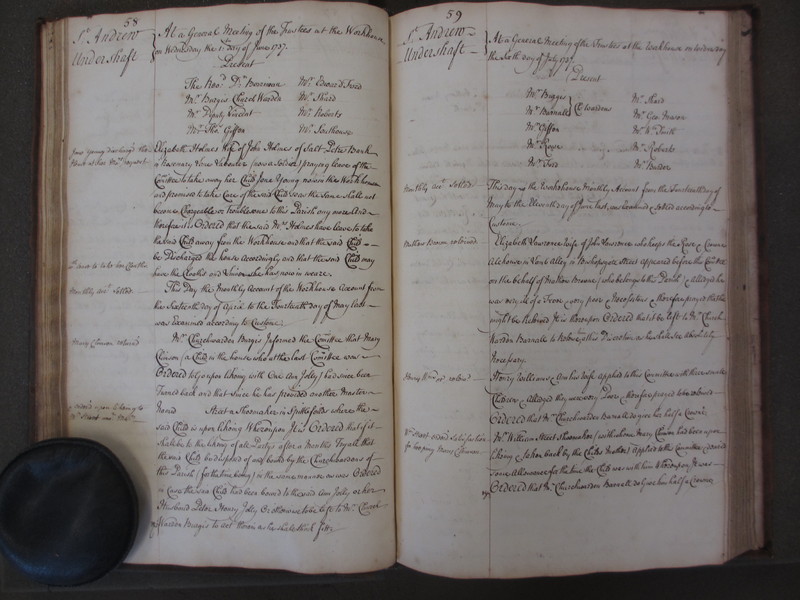 58
St. Andrew
Undershaft
At a General Meeting of the Trustees at the Workhouse
on Wednesday the 1st day of June 1737.
Present
The Revd. Dr. Berriman Mr. Edward Ford
Mr. Burgis Church Warden Mr. Shard
Mr. Deputy Mr. Roberts
Mr. Thos. Giffon Mr.
Elizabeth Holmes Wife of John Holmes of Salt Petre Bank
in Rosemary Lane Labourer (now a Soldier) praying leave of the
Comittee to take away her Child Jane Young now in the Workhouse
and promised to take Care of the said Child so as the same shall not
become Chargeable or troublesome to this Parish any more And
therefore it is Ordered that the said Mrs. Holmes have leave to take
the said Child away from the Workhouse and that the said Child
be Discharged the house Accordingly and that the said Child may
have the Cloaths and Linnen she has now in weare.
Monthly Acct. Settled
This Day the Monthly Account of the Workhouse Account from
the Sixteenth day of April to the Fourteenth day of May last
was Examined according to Custome.
Mary Clinson
Mr. Churchwarden Burgis Informed the Comittee that Mary
Clinson (a Child in the house who at the last Comittee was
Ordered to go upon likeing with One Ann Jolly) had since been
Turned back and that since he has provided another Master
Named Street a Shoemaker in Spittlefields where the
said Child is upon likeing Whereupon It is Ordered that if it
shall be to the likeing of all Partys after a Months Tryall that
the said Child be disposed of and bound by the Churchwardens of
this Parish (for the time being) in the same manner as was Ordered
in Case the said Child had been bound to the said Ann Jolly or her
Husband Peter Henry Jolly Or otherwise to be left to Mr. Church
Warden Burgis to act therein as he shall think fitt
59
St. Andrew
Undershaft
At a General Meeting of the Trustees at the Workhouse on Wednesday
the Sixth day of July 1737.
Present
Mr. Burgis
Mr. Barnall
Ch. Wardens
Mr. Giffon
Mr.
Mr. Ford
Mr. Shard
Mr. Geo. Mason
Mr. Wm. Smith
Mr. Roberts
Mr.
Monthly Acct. Settled
This day the Workhouse Monthly Account from the Fourteenth day of
May to the Eleventh day of June last, was Examined & Settled according to
Custome.
Elizabeth Lawrance Wife of John Lawrance who keeps the Rose & Crown
Alehouse in Lamb Alley in Bishopsgate Street appeared before the Comittee
on the behalf of Brown (who belongs to this Parish) & Alledged he
was very ill of a Fever & very poor & Necessitous & therefore prayed that he
might be Relieved It is thereupon Ordered that it be left to Mr. Church
Warden Barnall to Relieve in this Discretion as he shall see Absolutely
Necessary.
Henry Williams & Ann his Wife Applied to this Committee with their small
Children & Alledged they were very Poor & therefore prayed to be relieved
Ordered that Mr. Churchwarden Barnall do give her half a Crown.
for keeping Mary Clinson
Mr. William Street Shoemaker (with whom Mary Clinson had been upon
likeing & taken back by the Childs Mother) Applied to this Committee & desired
some Allowance for the time the Child was with him Whereupon It was
Ordered that Mr. Churchwarden Barnall do give him half a Crown.